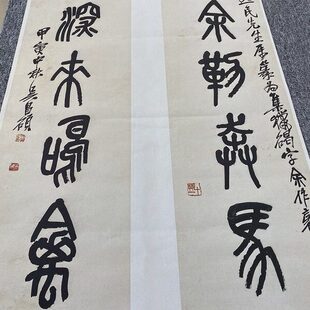 民先生屬篆為集獵碣字余作
余勒馬
深鳴禽
甲寅中秋吳昌碩